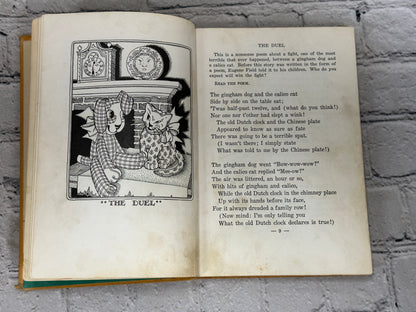 "THE DUEL"
THE DUEL
This is a nonsense poem about a fight, one of the most
terrible that ever happened, between a gingham dog and
a calico cat. Before this story was written in the form of
a poem, Eugene Field told it to his children. Who do you
expect will win the fight?
READ THE POEM.
The gingham dog and the calico cat
Side by side on the table sat;
'Twas half-past twelve, and (what do you think!)
Nor one nor t'other had slept a wink!
The old Dutch clock and the Chinese plate
Appeared to know as sure as fate
There was going to be a terrible spat.
(I wasn't there; I simply state
What was told to me by the Chinese plate!)
The gingham dog went "Bow-wow-wow!"
And the calico cat replied "Mee-ow!"
The air was littered, an hour or so,
With bits of gingham and calico,
While the old Dutch clock in the chimney place
Up with its hands before its face,
For it always dreaded a family row!
(Now mind: I'm only telling you
What the old Dutch clock declares is true!)
— 9 —